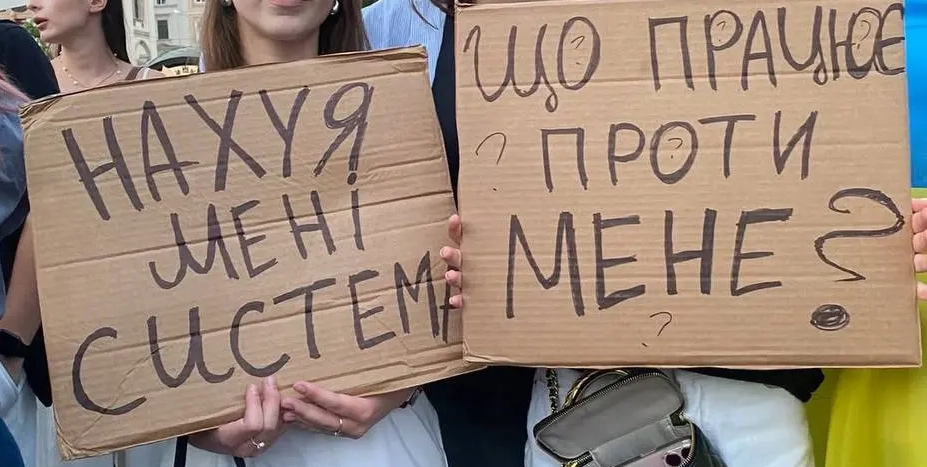 НАХУЯ
МЕНІ
СИСТЕМА
ЩО ПРАЦЮЄ
ПРОТИ
МЕНЕ?